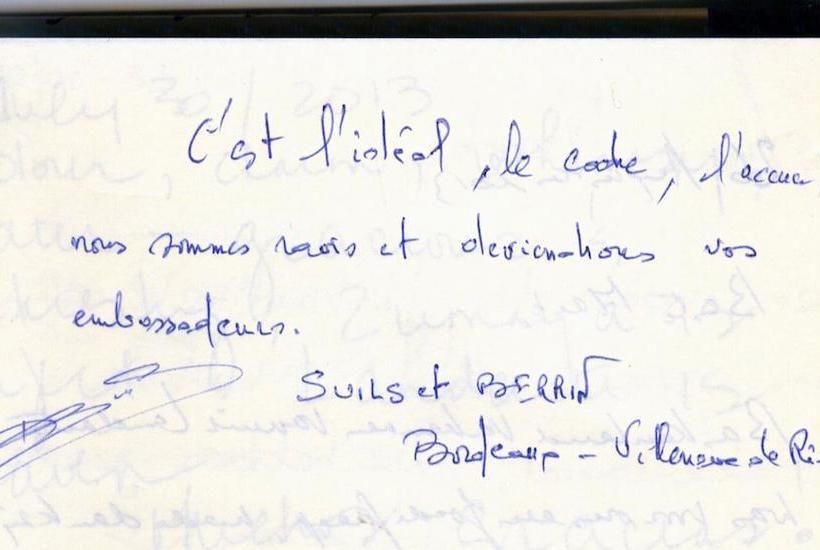 C'est l'idéal, le cadre, l'accue
nous sommes ravis et deviendrons vos
embassadeurs.
SUILS et BERRIN
Bordeaux - Villeneuve de Ri